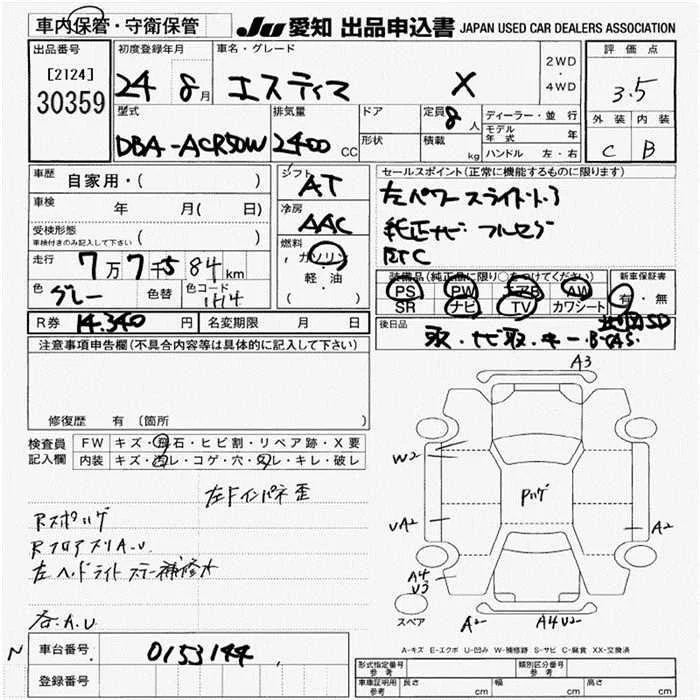 車内保管・守衛保管
JU 愛知 出品申込書 JAPAN USED CAR DEALERS ASSOCIATION
出品番号
[2124]
30359
初度登録年月
24 8月
車名・グレード
エスティマ X
2WD
・
4WD
評価点
3.5
外装 内装
C B
型式
DBA-ACR50W
排気量
2400 CC
ドア
形状
定員
8人
積載
kg
ディーラー・並行
モデル年式 年
ハンドル 左・右
車歴
自家用・( )
車検
年 月( 日)
受検形態
車検付きのみ記入して下さい ( )
走行
7万7千584km
色
グレー
色替
色コード
1H4
シフト
AT
冷房
AAC
燃料
ガソリン
軽・油
( )
セールスポイント(正常に機能するものに限ります)
左パワースライドドア
純正ナビ フルセグ
ETC
装備品(純正品に限り○をつけてください)
PS PW エアB AW
SR ナビ TV カワシート
新車保証書
有・無
R券 14.340 円
名変期限 月 日
後日品
取・ナビ取・キー・
SD
注意事項申告欄(不具合内容等は具体的に記入して下さい)
修復歴 有 〔箇所
検査員
記入欄
FW キズ・飛石・ヒビ割・リペア跡・X要
内装 キズ・汚レ・コゲ・穴・スレ・キレ・破レ
左Fインパネ歪
Rスポハゲ
RフロアスリA.U
左ヘッドライトステー補修水
各A.U
A3
W2
Pハゲ
UA2
A2
A4
U3
スペア
A2
A4U2
A-キズ E-エクボ U-凹み W-補修跡 S-サビ C-腐食 XX-交換済
N
車台番号
0153144
登録番号
形式指定番号
参考
類別区分番号
参考
車庫証明用
参考
長さ cm
幅 cm
高さ cm